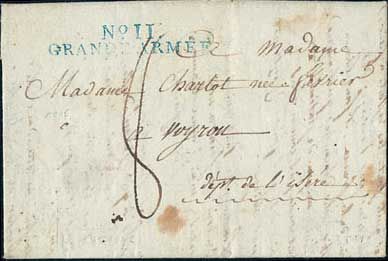 No 11
GRANDE ARMÉE
a Madame
Madame Charlot née février
a voyron
8
dépt. de L'ysère